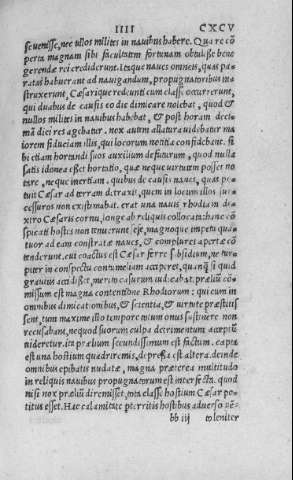 IIII CXCV
se venisse, nec ullos milites in navibus habere. Quare cō
perta magnam sibi facultatem fortunam obtulisse bene
gerendæ rei crediderunt. Itaque naves omneis, quas pa=
ratas habuerant ad navigandum, propugnatoribus in=
struxerunt, Cæsarique redeunti cum classe occurrerunt,
qui duabus de causis eo die dimicare nolebat, quod &
nullos milites in navibus habebat, & post horam deci=
mā dici res agebatur. nox autem allatura videbatur ma
iorem fiduciam illis, qui locorum notitia confidebant. si
bi etiam hortandi suos auxilium defuturum, quod nulla
satis idonea esset hortatio, quæ neque virtutem posset no
tare, neque inertiam. quibus de causis naves, quas po=
tuit Cæsar ad terram detraxit, quem in locum illos suc=
cessuros non existimabat. erat una navis rhodia in de
xtro Cæsaris cornu, longe ab reliquis collocata. hanc cō
spicati hostes non tenuerunt sese, magnoque impetu qua
tuor ad eam constratæ naves, & complures apertæ cō
tenderunt. cui coactus est Cæsar ferre subsidium, ne tur
piter in conspectu contumeliam acciperet, quanq si quid
gravius accidisset, merito casurum iudicabat. prælium cō
missum est magna contentione Rhodiorum: qui cum in
omnibus dimicationibus, & scientia, & virtute præstitis
sent, tum maxime illo tempore totum onus sustinere non
recusabant, ne quod suorum culpa detrimentum acceptū
videretur. ita prælium secundissimum est factum. capta
est una hostium quadriremis, depressa est altera. deinde
omnibus epibatis nudatæ, magna præterea multitudo
in reliquis navibus propugnatorum est interfecta. quod
nisi nox prælium diremisset, tota classe hostium Cæsar po
titus esset. Hac calamitate perterritis hostibus adverso vē=
bb iij to leniter